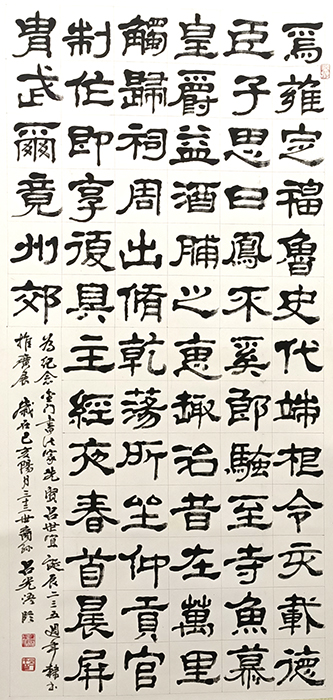 焉雍定福魯史代端相令灾載德
臣子思曰鳳不奚郎驗至寺魚慕
皇爵益酒脯之惠趣治昔在萬里
觸歸祠周出脩乾蕩所坐仲貢官
制作即享復具主經夜春首晨屏
胄武爾竟州郊
為紀念金門書法家先賢呂世宜誕辰二三五週年
推廣展 歲在己亥陽月二十三世裔孫 呂光浯臨